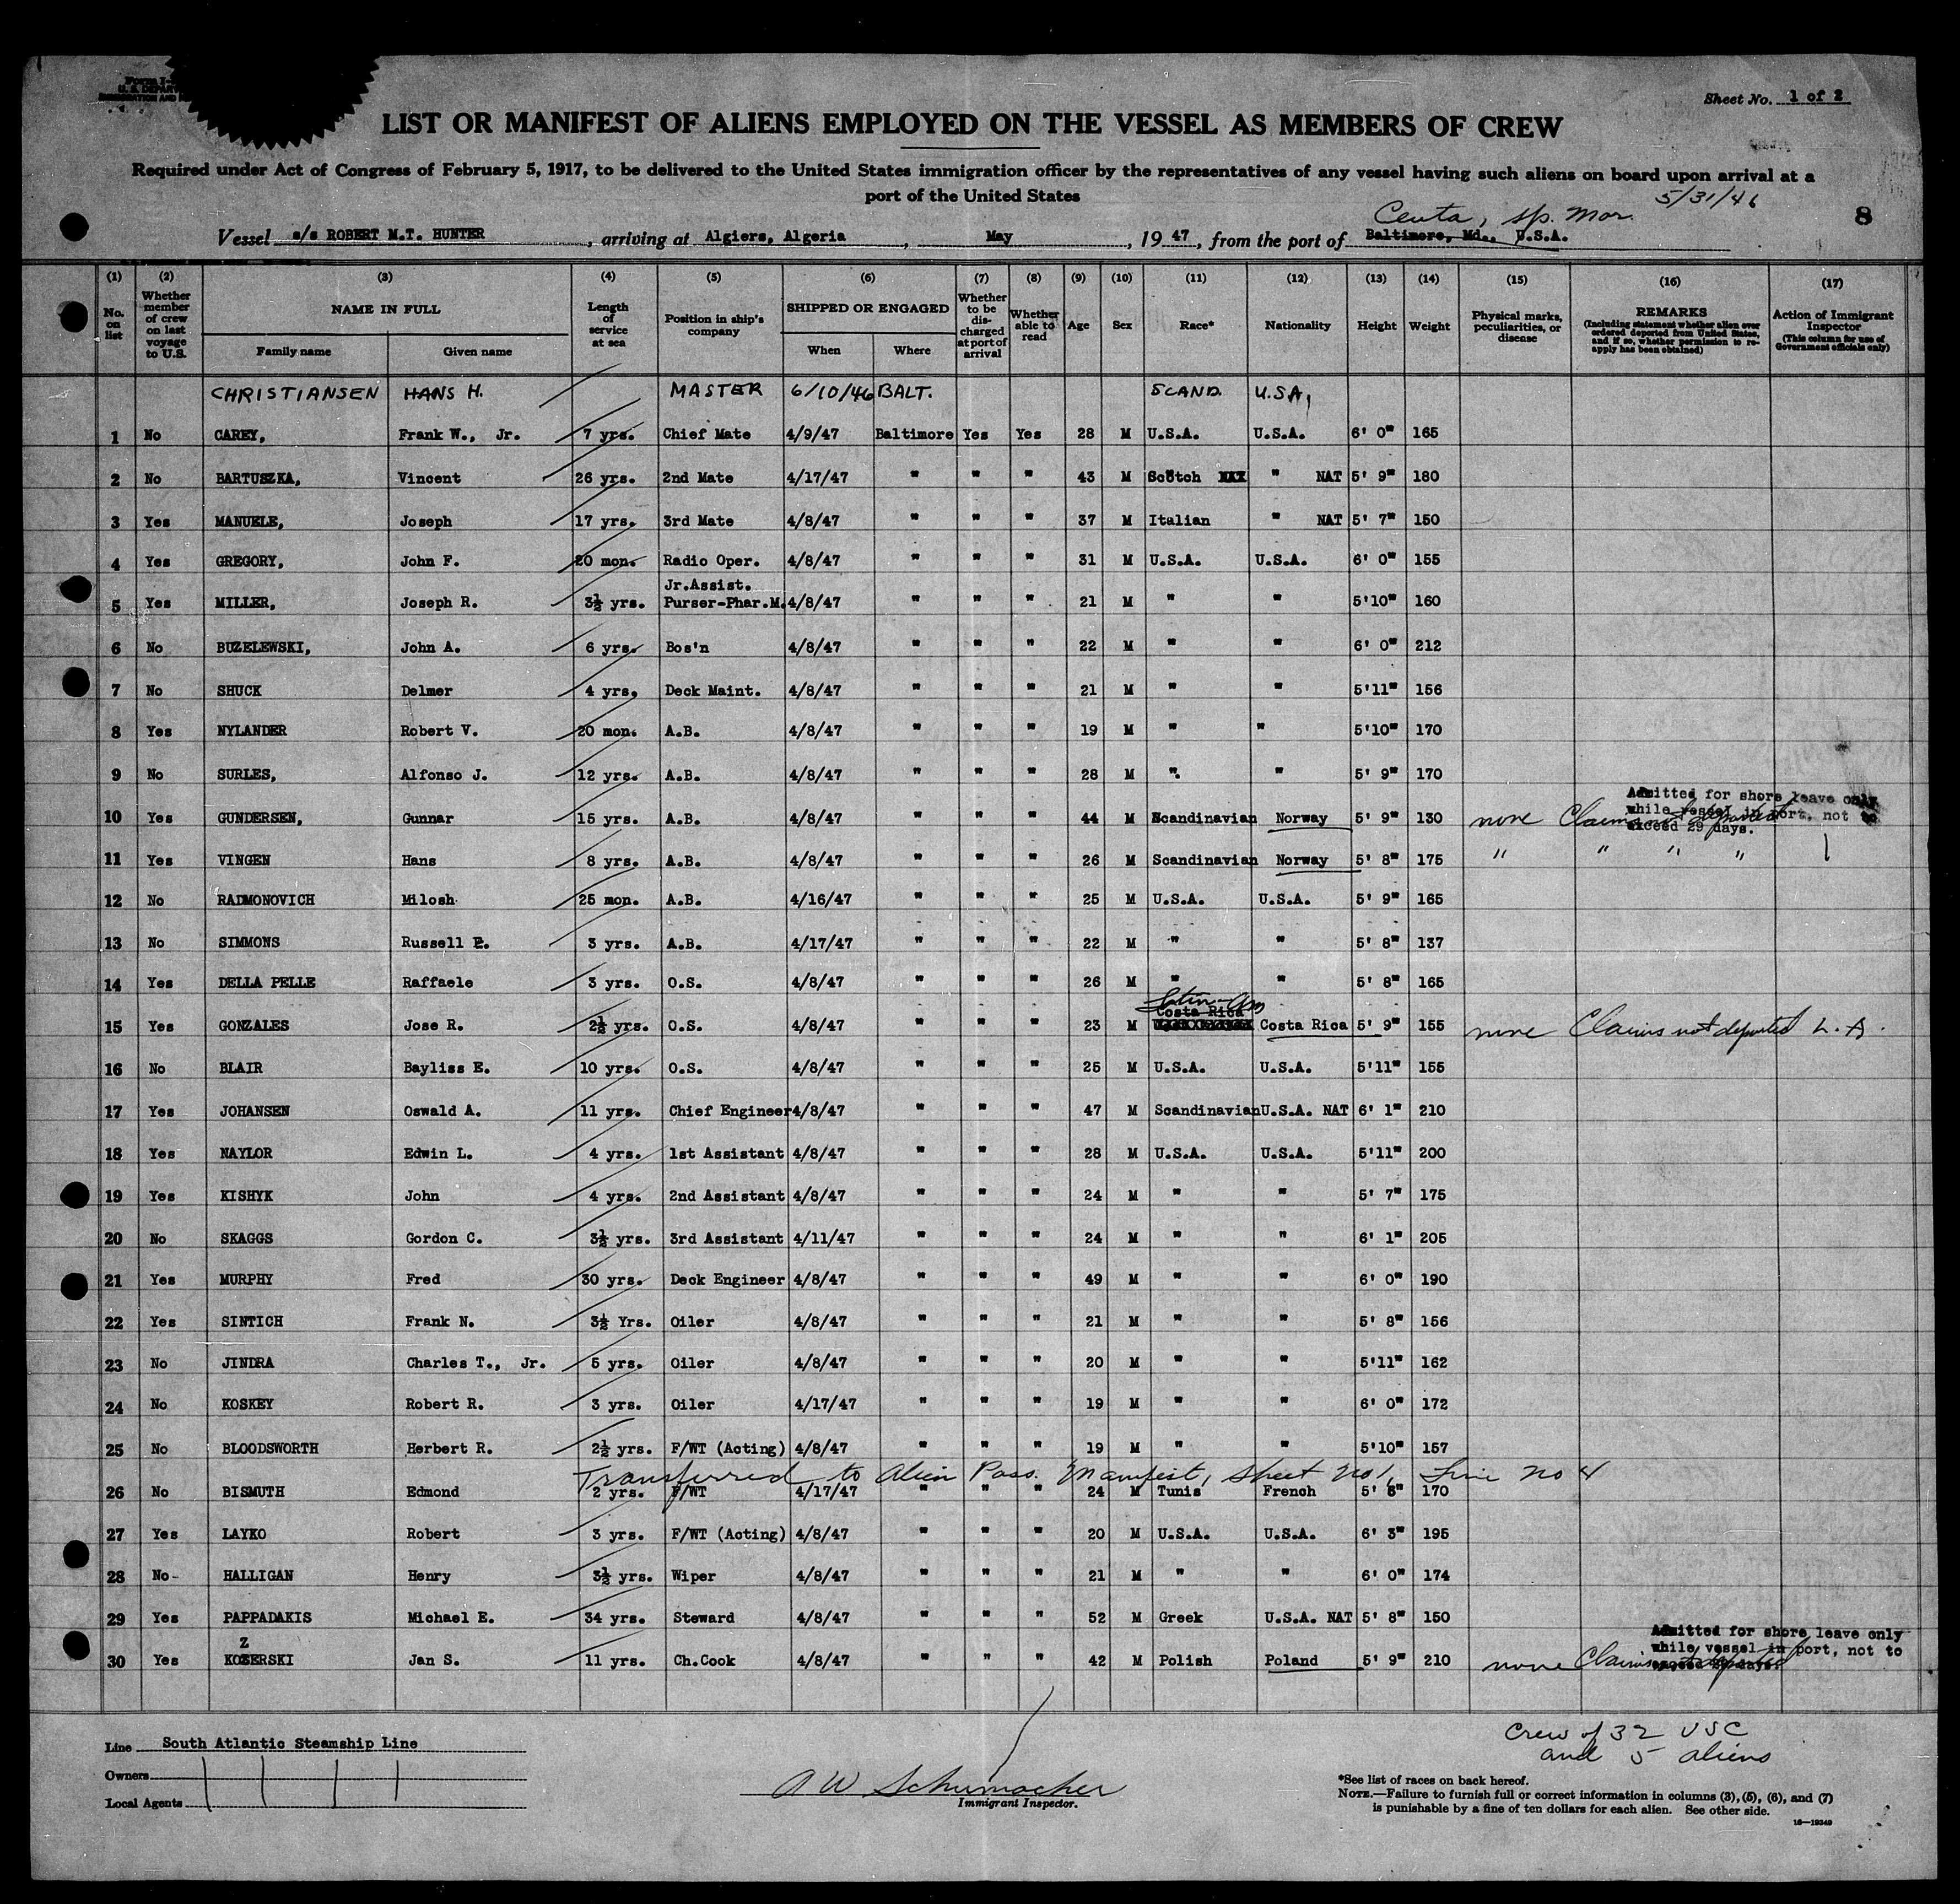 Form I-
U. S. DEPAR
IMMIGRATION AND
Sheet No. 1 of 2
LIST OR MANIFEST OF ALIENS EMPLOYED ON THE VESSEL AS MEMBERS OF CREW
Required under Act of Congress of February 5, 1917, to be delivered to the United States immigration officer by the representatives of any vessel having such aliens on board upon arrival at a
port of the United States
5/31/46
8
Ceuta, Sp. Mor.
Vessel s/s ROBERT M.T. HUNTER, arriving at Algiers, Algeria, May, 19 47, from the port of Baltimore, Md., U.S.A.
(1) (2) (3) (4) (5) (6) (7) (8) (9) (10) (11) (12) (13) (14) (15) (16) (17)
No. on list Whether member of crew on last voyage to U.S. NAME IN FULL Family name Given name Length of service at sea Position in ship's company SHIPPED OR ENGAGED When Where Whether to be discharged at port of arrival Whether able to read Age Sex Race* Nationality Height Weight Physical marks, peculiarities, or disease REMARKS (Including statement whether alien ever ordered deported from United States, and if so, whether permission to reapply has been obtained) Action of Immigrant Inspector (This column for use of Government officials only)
CHRISTIANSEN HANS H. MASTER 6/10/46 BALT. SCAND. U.S.A.
1 No CAREY, Frank W., Jr. 7 yrs. Chief Mate 4/9/47 Baltimore Yes Yes 28 M U.S.A. U.S.A. 6' 0" 165
2 No BARTUSZKA, Vincent 26 yrs. 2nd Mate 4/17/47 " " " 43 M Scotch " NAT 5' 9" 180
3 Yes MANUELE, Joseph 17 yrs. 3rd Mate 4/8/47 " " " 37 M Italian " NAT 5' 7" 150
4 Yes GREGORY, John F. 20 mon. Radio Oper. 4/8/47 " " " 31 M U.S.A. U.S.A. 6' 0" 155
Jr.Assist.
5 Yes MILLER, Joseph R. 3½ yrs. Purser-Phar.M. 4/8/47 " " " 21 M " " 5'10" 160
6 No BUZELEWSKI, John A. 6 yrs. Bos'n 4/8/47 " " " 22 M " " 6' 0" 212
7 No SHUCK Delmer 4 yrs. Deck Maint. 4/8/47 " " " 21 M " " 5'11" 156
8 Yes NYLANDER Robert V. 20 mon. A.B. 4/8/47 " " " 19 M " " 5'10" 170
9 No SURLES, Alfonso J. 12 yrs. A.B. 4/8/47 " " " 28 M " " 5' 9" 170
Admitted for shore leave only
while vessel in port, not to
exceed 29 days.
10 Yes GUNDERSEN, Gunnar 15 yrs. A.B. 4/8/47 " " " 44 M Scandinavian Norway 5' 9" 130 none Claims not deported
11 Yes VINGEN Hans 8 yrs. A.B. 4/8/47 " " " 26 M Scandinavian Norway 5' 8" 175 " " " "
12 No RADMONOVICH Milosh 25 mon. A.B. 4/16/47 " " " 25 M U.S.A. U.S.A. 5' 9" 165
13 No SIMMONS Russell P. 3 yrs. A.B. 4/17/47 " " " 22 M " " 5' 8" 137
14 Yes DELLA PELLE Raffaele 3 yrs. O.S. 4/8/47 " " " 26 M " " 5' 8" 165
Latin-Am
Costa Rica
15 Yes GONZALES Jose R. 2½ yrs. O.S. 4/8/47 " " " 23 M Costa Rica 5' 9" 155 none Claims not deported L.A.
16 No BLAIR Bayliss E. 10 yrs. O.S. 4/8/47 " " " 25 M U.S.A. U.S.A. 5'11" 155
17 Yes JOHANSEN Oswald A. 11 yrs. Chief Engineer 4/8/47 " " " 47 M Scandinavian U.S.A. NAT 6' 1" 210
18 Yes NAYLOR Edwin L. 4 yrs. 1st Assistant 4/8/47 " " " 28 M U.S.A. U.S.A. 5'11" 200
19 Yes KISHYK John 4 yrs. 2nd Assistant 4/8/47 " " " 24 M " " 5' 7" 175
20 No SKAGGS Gordon C. 3½ yrs. 3rd Assistant 4/11/47 " " " 24 M " " 6' 1" 205
21 Yes MURPHY Fred 30 yrs. Deck Engineer 4/8/47 " " " 49 M " " 6' 0" 190
22 Yes SINTICH Frank N. 3½ Yrs. Oiler 4/8/47 " " " 21 M " " 5' 8" 156
23 No JINDRA Charles T., Jr. 5 yrs. Oiler 4/8/47 " " " 20 M " " 5'11" 162
24 No KOSKEY Robert R. 3 yrs. Oiler 4/17/47 " " " 19 M " " 6' 0" 172
25 No BLOODSWORTH Herbert R. 2½ yrs. F/WT (Acting) 4/8/47 " " " 19 M " " 5'10" 157
Transferred to Alien Pass. Manifest, Sheet No 1, Line No 4
26 No BISMUTH Edmond 2 yrs. F/WT 4/17/47 " " " 24 M Tunis French 5' 6" 170
27 Yes LAYKO Robert 3 yrs. F/WT (Acting) 4/8/47 " " " 20 M U.S.A. U.S.A. 6' 3" 195
28 No- HALLIGAN Henry 3½ yrs. Wiper 4/8/47 " " " 21 M " " 6' 0" 174
29 Yes PAPPADAKIS Michael E. 34 yrs. Steward 4/8/47 " " " 52 M Greek U.S.A. NAT 5' 8" 150
Z
Admitted for shore leave only
while vessel in port, not to
exceed 29 days.
30 Yes KOZERSKI Jan S. 11 yrs. Ch.Cook 4/8/47 " " " 42 M Polish Poland 5' 9" 210 none Claims not deported
Crew of 32 USC
and 5 aliens
Line South Atlantic Steamship Line
Owners
Local Agents
A W Schumacher
Immigrant Inspector.
*See list of races on back hereof.
NOTE.—Failure to furnish full or correct information in columns (3), (5), (6), and (7)
is punishable by a fine of ten dollars for each alien. See other side.
16—19349